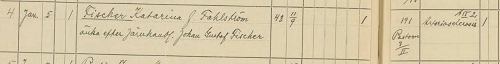 4 Jan. 5 1 Fischer Katarina f Fahlström 48 11/9 1 191
änka efter Järnhandl. Johan Gustaf Fischer